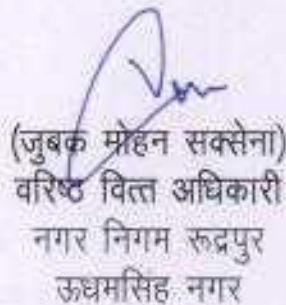 (जुबक मोहन सक्सेना)
वरिष्ठ वित्त अधिकारी
नगर निगम रूद्रपुर
ऊधमसिह नगर